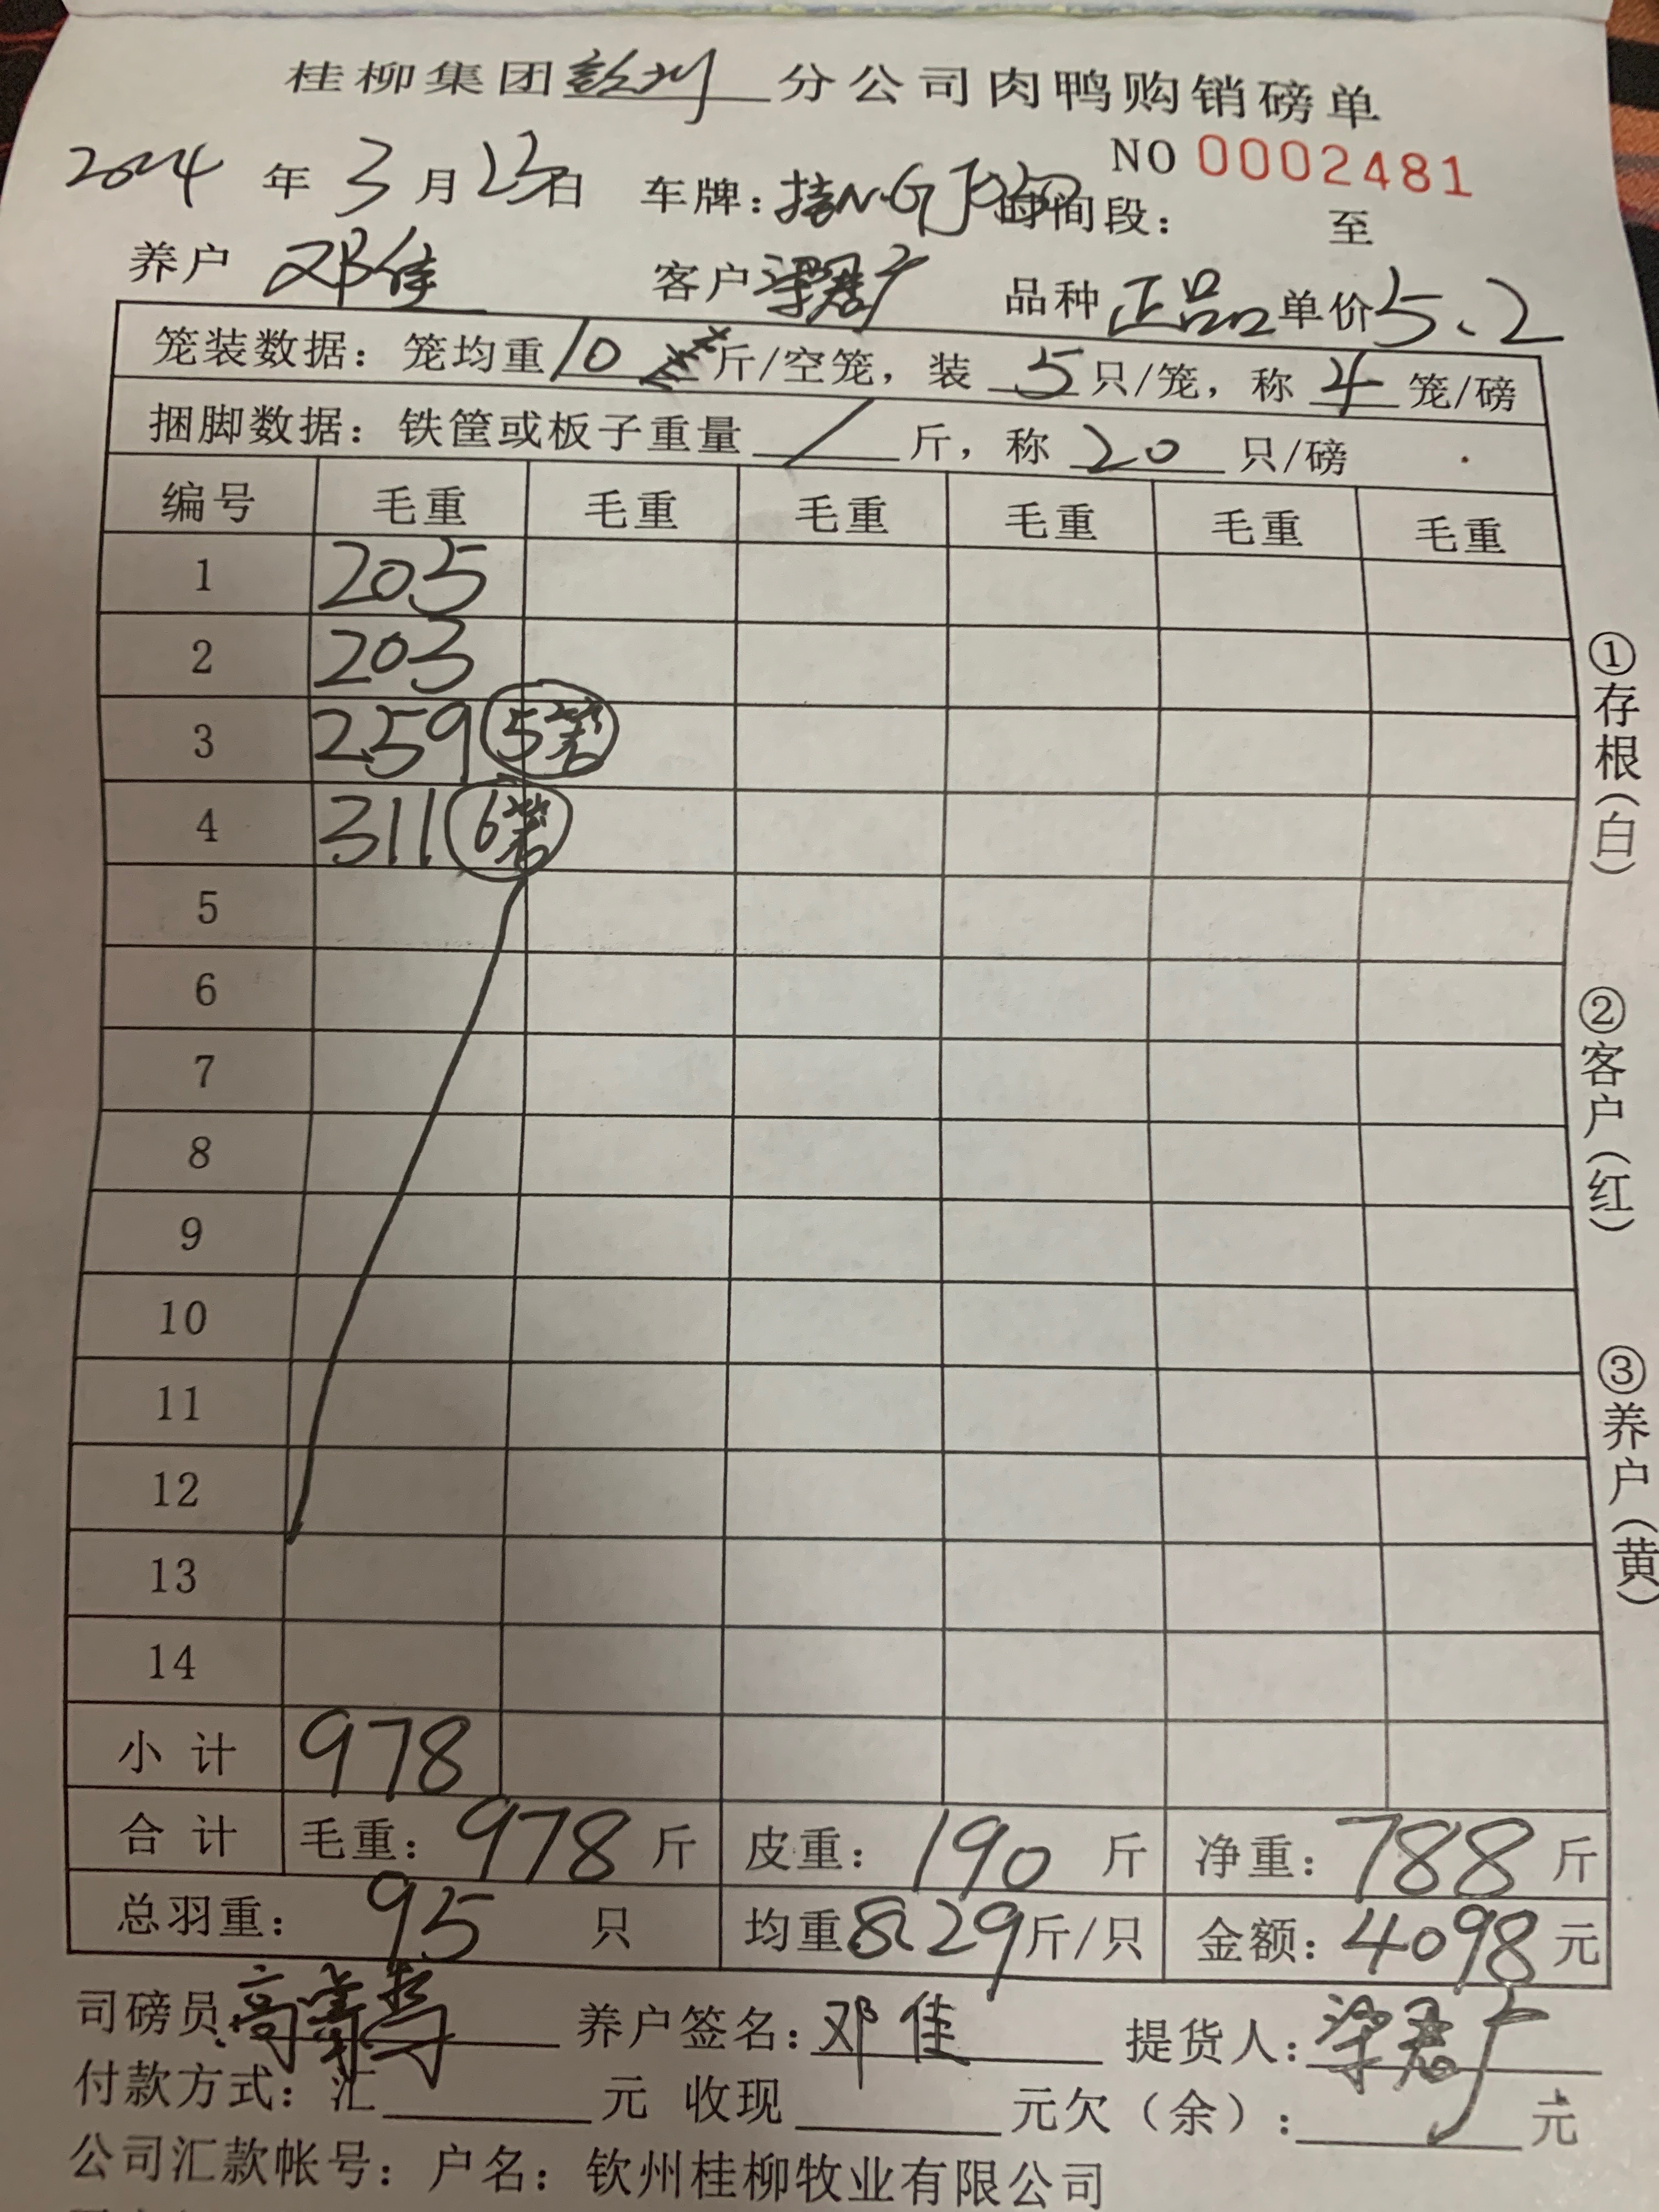 桂柳集团钦州分公司肉鸭购销磅单
NO 0002481
2024年3月23日 车牌：桂N·GJ0 时间段： 至
养户 邓佳 客户 梁君广 品种 正品 单价 5.2
笼装数据：笼均重10斤/空笼，装5只/笼，称4笼/磅
捆脚数据：铁筐或板子重量/斤，称20只/磅
编号 毛重 毛重 毛重 毛重 毛重 毛重
1 205
2 203
3 259 5笼
4 311 6笼
5
6
7
8
9
10
11
12
13
14
小计 978
合计 毛重：978斤 皮重：190斤 净重：788斤
总羽重：95只 均重8.29斤/只 金额：4098元
司磅员：高 养户签名：邓佳 提货人：梁君广
付款方式：汇 元 收现 元欠（余）： 元
公司汇款帐号：户名：钦州桂柳牧业有限公司
①存根（白）
②客户（红）
③养户（黄）